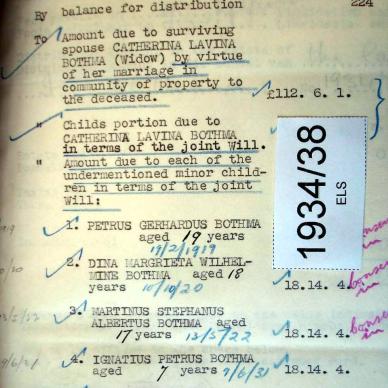 By balance for distribution 224
To Amount due to surviving
spouse CATHERINA LAVINA
BOTHMA (Widow) by virtue
of her marriage in
community of property to
the deceased. £112. 6. 1.
" Childs portion due to
CATHERINA LAVINA BOTHMA
in terms of the joint Will.
" Amount due to each of the
undermentioned minor child-
ren in terms of the joint
Will:
1934/38
ELS
1. PETRUS GERHARDUS BOTHMA
aged 19 years
19/2/1919
2. DINA MARGRIETA WILHEL-
MINE BOTHMA aged 18
years 10/10/20 18.14. 4.
3. MARTINUS STEPHANUS
ALBERTUS BOTHMA aged
17 years 13/5/22 18.14. 4.
4. IGNATIUS PETRUS BOTHMA
aged 7 years 9/6/31 18.14. 4.